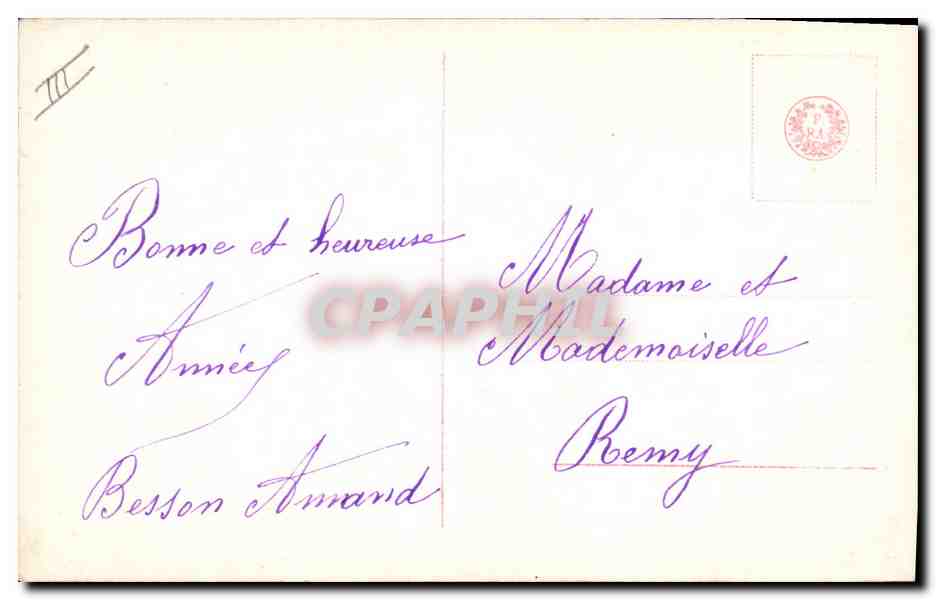 III
Bonne et heureuse
Année
Besson Amand
Madame et
Mademoiselle
Remy
CPAPHIL